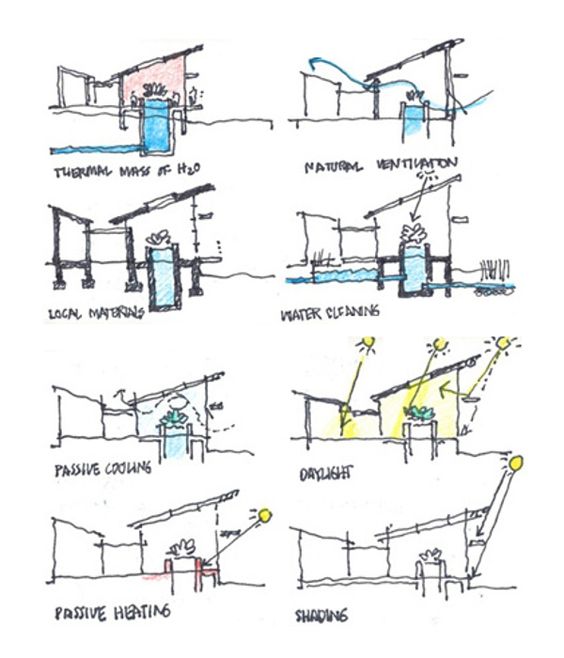 THERMAL MASS OF H2O
NATURAL VENTILATION
LOCAL MATERIALS
WATER CLEANING
PASSIVE COOLING
DAYLIGHT
PASSIVE HEATING
SHADING